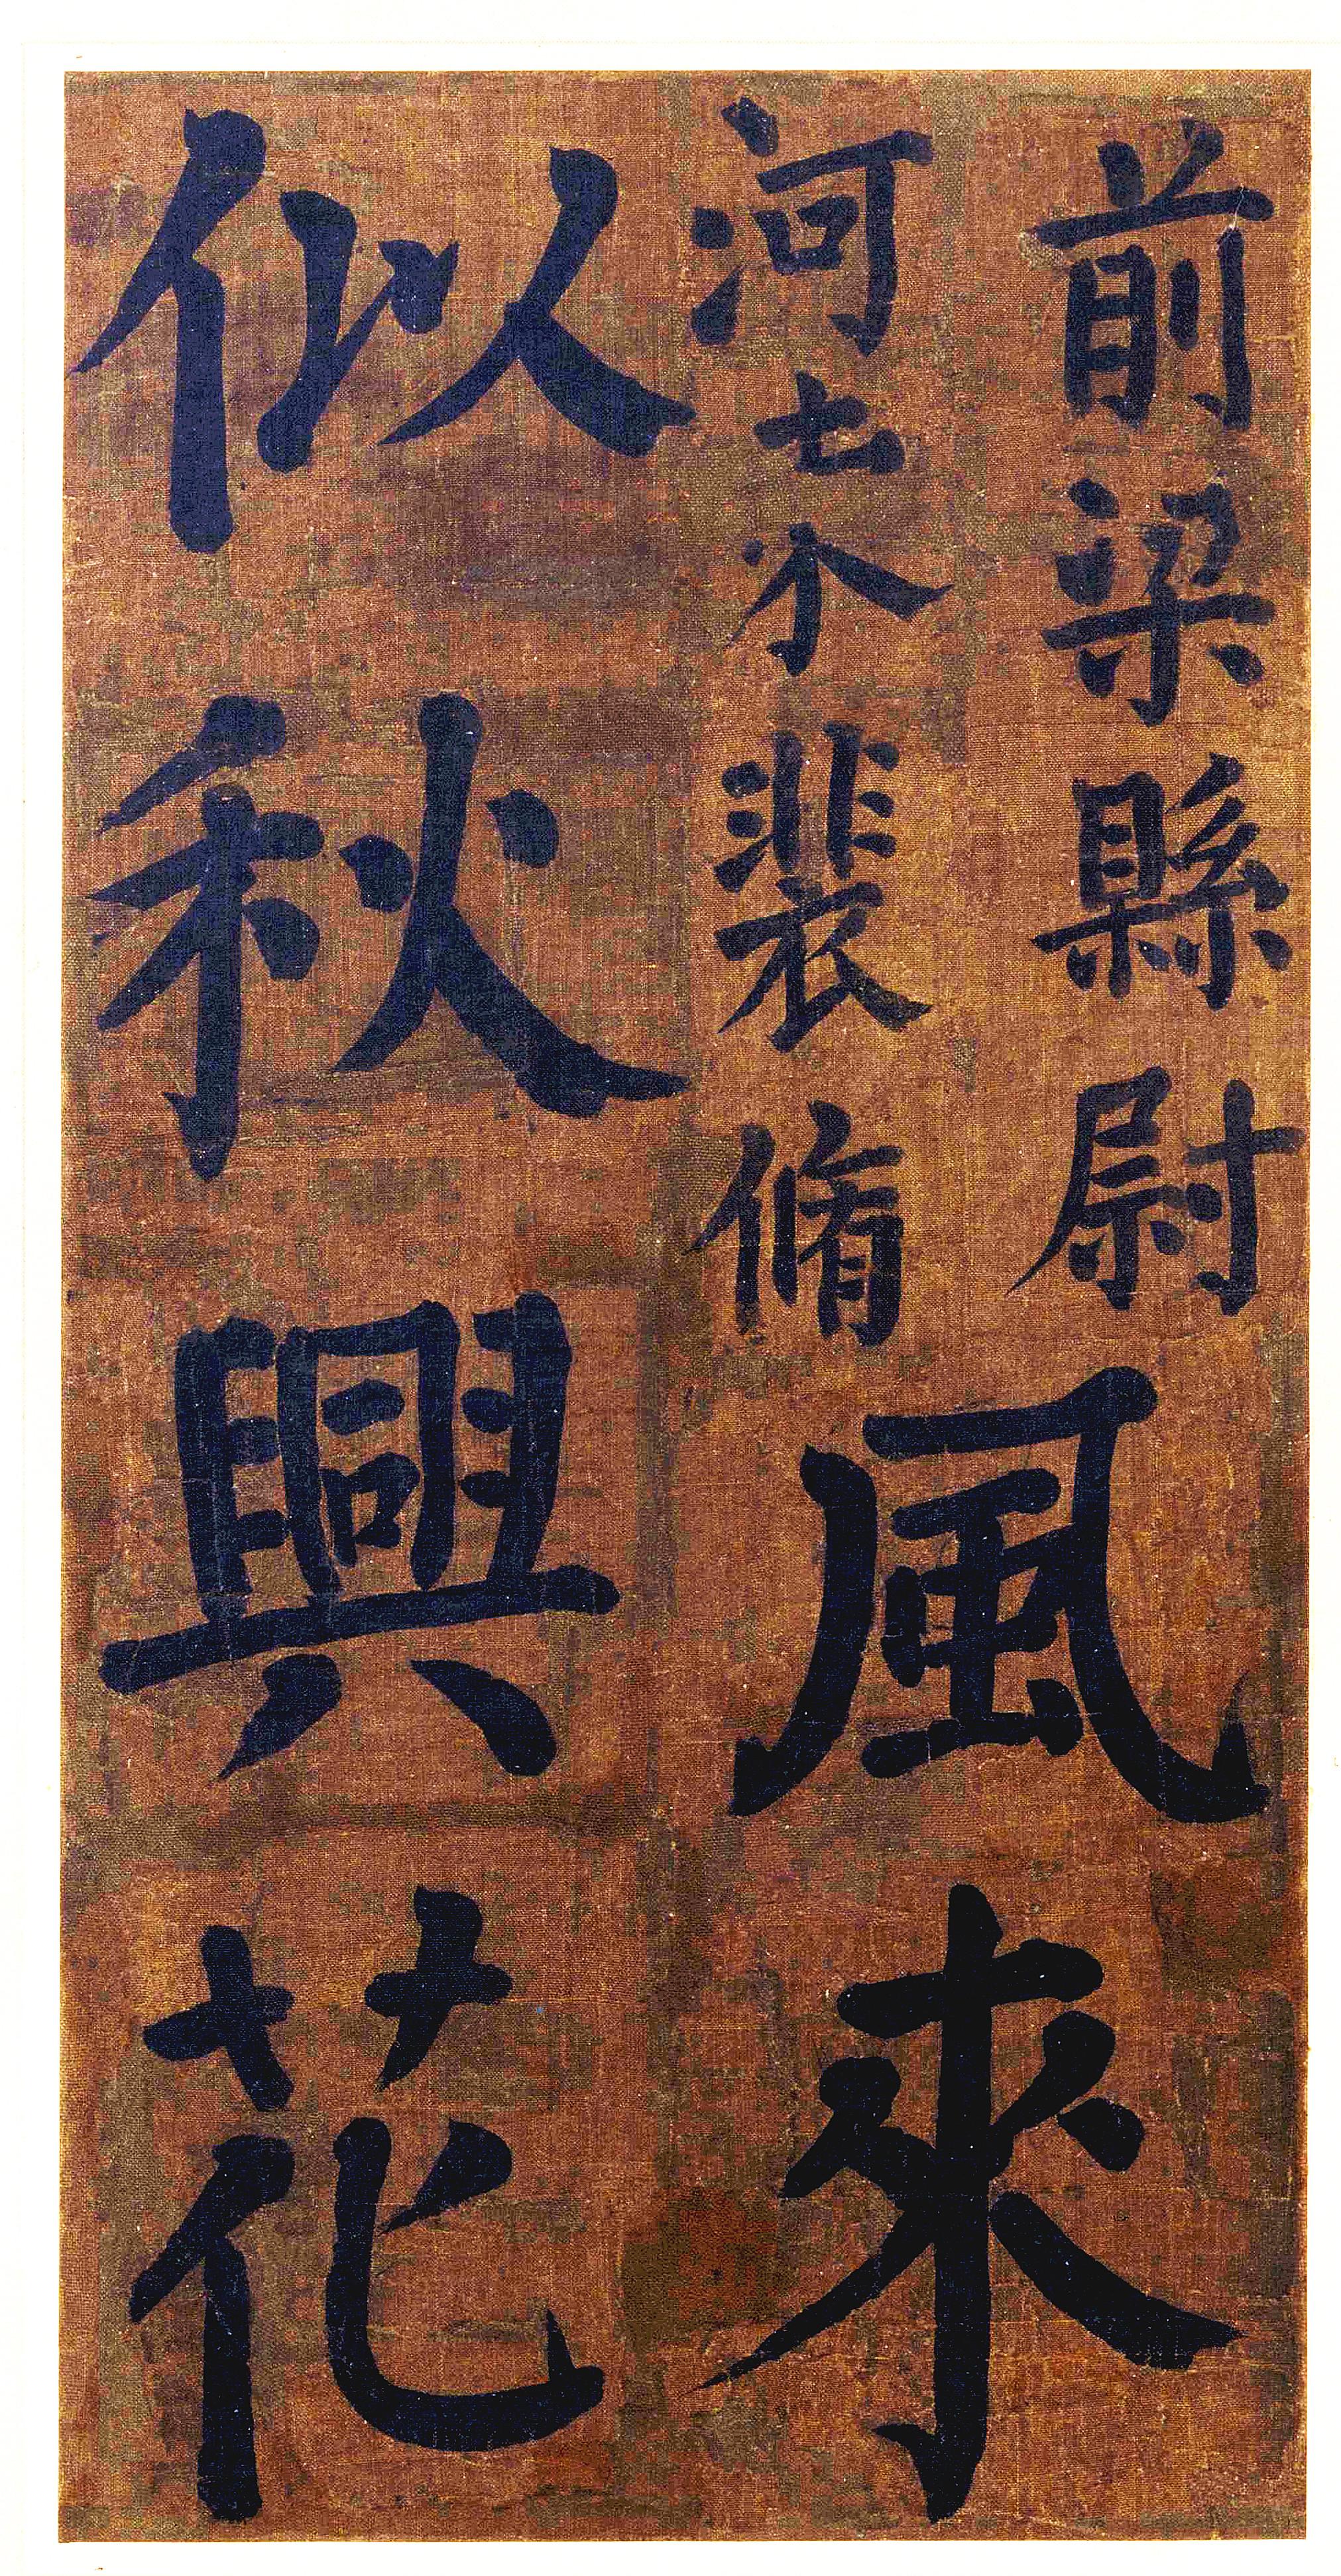 前梁縣尉
河 裴脩
風來
似秋興花